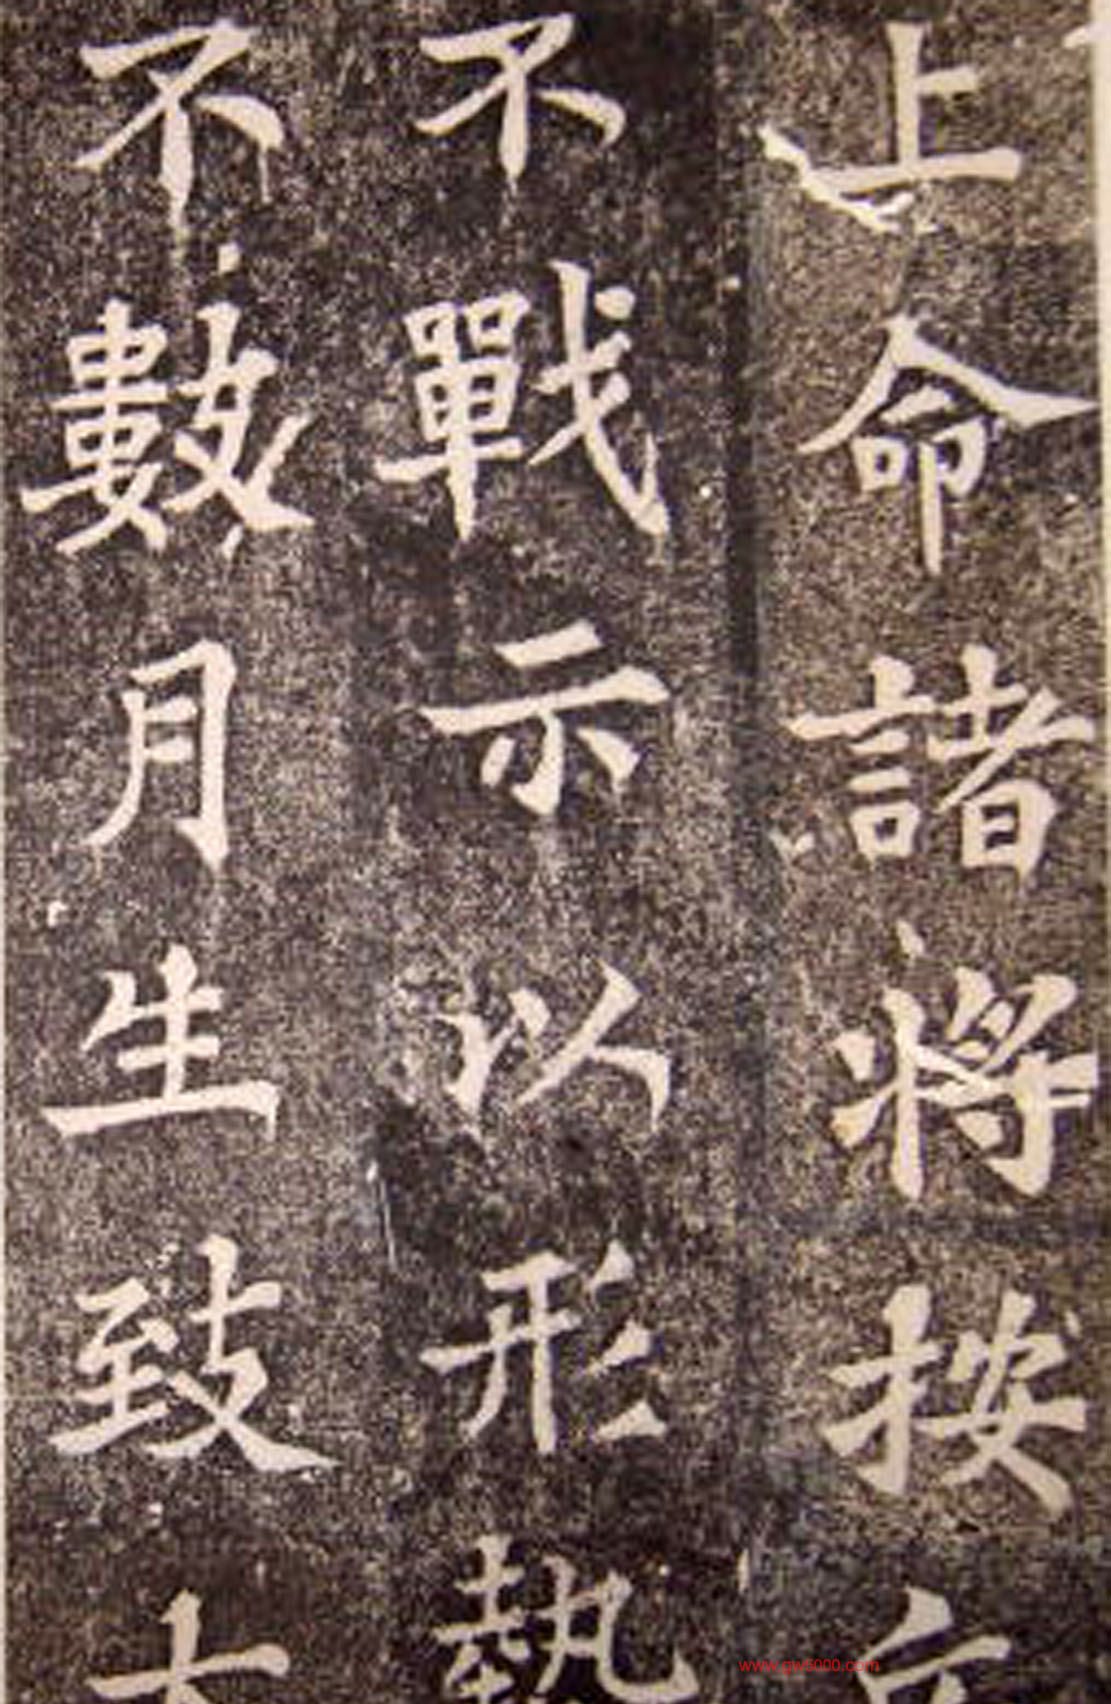 上命諸將按兵
不戰示以形勢
不數月生致大
www.gw5000.com